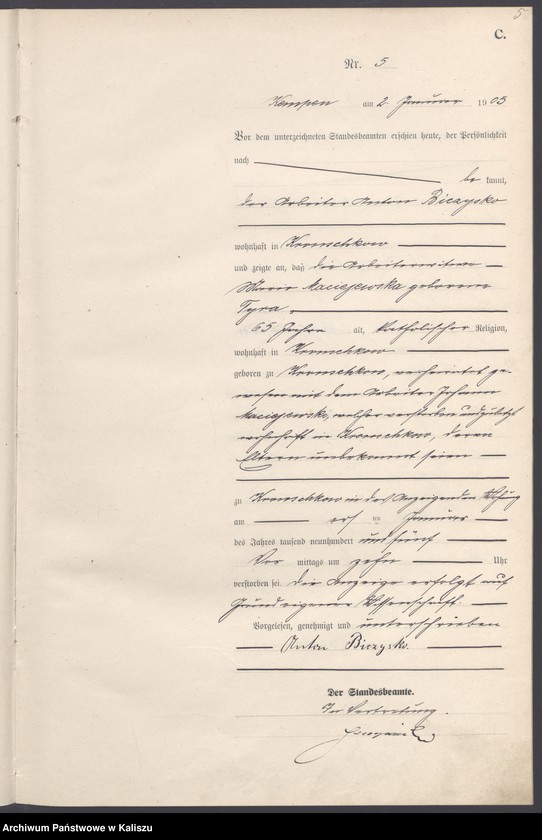 5
C.
Nr. 5
Kempen am 2. Januar 1905
Vor dem unterzeichneten Standesbeamten erschien heute, der Persönlichkeit
nach
be kannt,
der Arbeiter Anton Biczysko
wohnhaft in
und zeigte an, daß die Arbeiterwitwe
Marie Maciejewska geborene
Tyra
65 Jahre alt, katholischer Religion,
wohnhaft in
geboren zu verheiratet ge-
wesen mit dem Arbeiter Johann
Maciejewski, welcher verstorben und zuletzt
wohnhaft in deren
Eltern unbekannt seien
zu in des Anzeigenden Wohnung
am ersten Januar
des Jahres tausend neunhundert und fünf
Vor mittags um zehn Uhr
verstorben sei. Die Anzeige erfolgt auf
Grund eigener Wissenschaft.
Vorgelesen, genehmigt und unterschrieben
Anton Biczysko.
Der Standesbeamte.
In Vertretung.
Archiwum Państwowe w Kaliszu